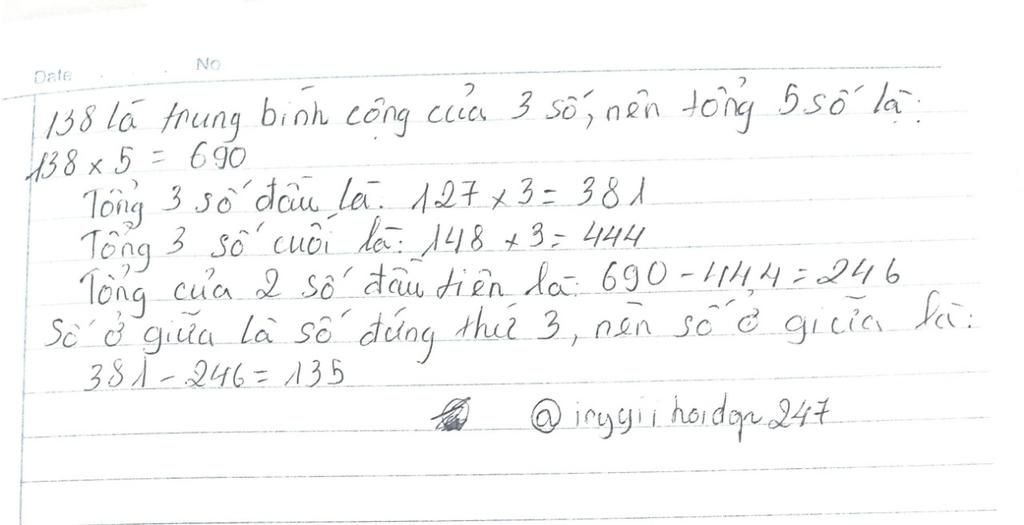 Date No
138 là trung bình cộng của 3 số, nên tổng 5 số là:
138 x 5 = 690
Tổng 3 số đầu là: 127 x 3 = 381
Tổng 3 số cuối là: 148 x 3 = 444
Tổng của 2 số đầu tiên là: 690 - 444 = 246
Số ở giữa là số đứng thứ 3, nên số ở giữa là:
381 - 246 = 135